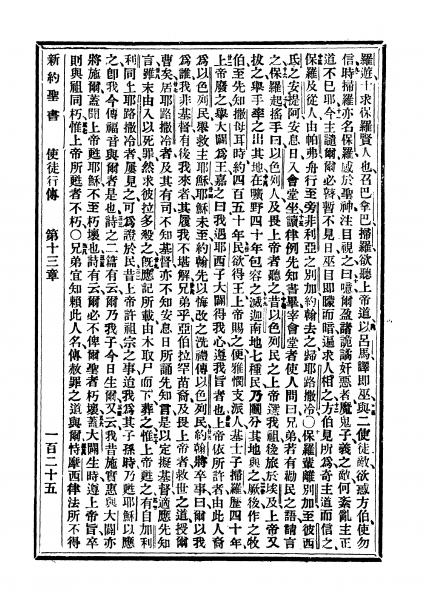 羅遊士求保羅賢人也召巴拿巴掃羅欲聽上帝道以呂馬譯卽巫與二使徒敵欲惑方伯使勿
信時掃羅亦名保羅感於聖神注目視之曰噫爾盈諸詭譎奸惡者魔鬼子義之敵何紊亂主正
道不已耶今主譴爾爾必瞽暫不見日巫目卽矇而暗遍求人相之方伯見所爲奇主道而信之
保羅及從人由帕弗舟行至旁非利亞之別加約翰去之歸耶路撒冷○保羅輩離別加至彼西
氐之安提阿安息日入會堂坐讀律例先知書畢宰會堂者使人問曰兄弟若有勸民之語請言
之保羅起搖手曰以色列人及畏上帝者聽之昔以色列民之上帝選我祖後旅於埃及上帝又
拔之舉手牽之出其地在曠野四十年包容之滅迦南地七種民乃鬮分其地與之厥後作之牧
伯至先知撒母耳時約四百五十年民欲得王上帝賜之便雅憫支派人基士子掃羅歷四十年
上帝廢之舉大闢爲王嘉之曰我遇耶西子大闢得我心遵我旨者也上帝依所許者由此人裔
爲以色列民舉救主耶穌耶穌未至約翰先以悔改之洗禮傳以色列民約翰將卒事曰爾以我
爲誰我非基督有後我來者其履我不堪解兄弟乎亞伯拉罕苗裔及畏上帝者救世之道授爾
曹矣居耶路撒冷者及其有司不知基督亦不知安息日所誦先知言是以定擬基督適應先知
言雖末由入以死罪然求彼拉多殺之旣應記所載由木取尸而下葬之惟上帝甦之有自加利
利同上耶路撒冷者屢見之可爲證於民昔上帝許祖宗之事迨我爲其子孫時乃甦耶穌以應
之卽我今傳福音與爾者是也詩之二篇有云爾乃我子今日生爾又云我昔施實惠與大闢亦
將施爾蓋聞上帝甦耶穌不至朽壞也詩有云爾必不俾爾聖者朽壞蓋大闢生時遵上帝旨卒
則與祖同朽惟上帝所甦者不朽○兄弟宜知賴此人名傳赦罪之道與爾恃摩西律法所不得
新約聖書　使徒行傳　第十三章　一百二十五